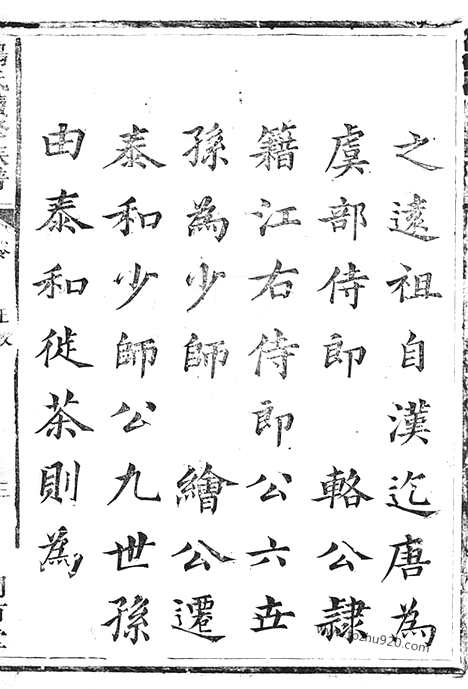 之遠祖自漢迄唐為
虞部侍郎 輅公隸
籍江右侍郎公六世
孫為少師 繪公遷
泰和少師公九世孫
由泰和徙茶則為
zhu920.com